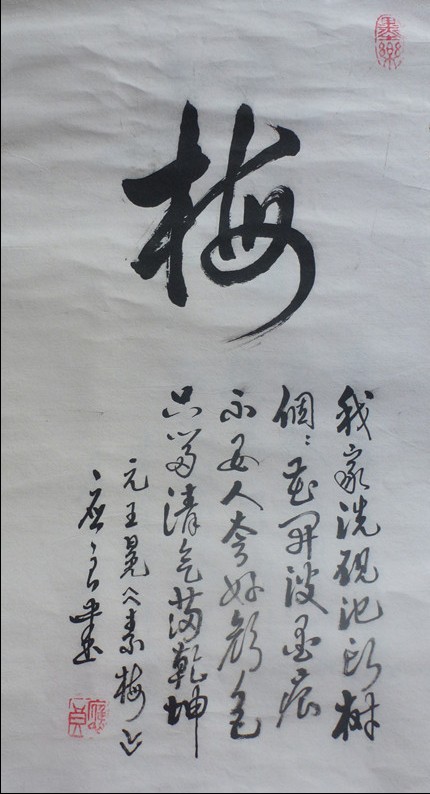 梅
我家洗硯池头树
個個花開淡墨痕
不要人夸好颜色
只留清气满乾坤
元王冕《素梅》